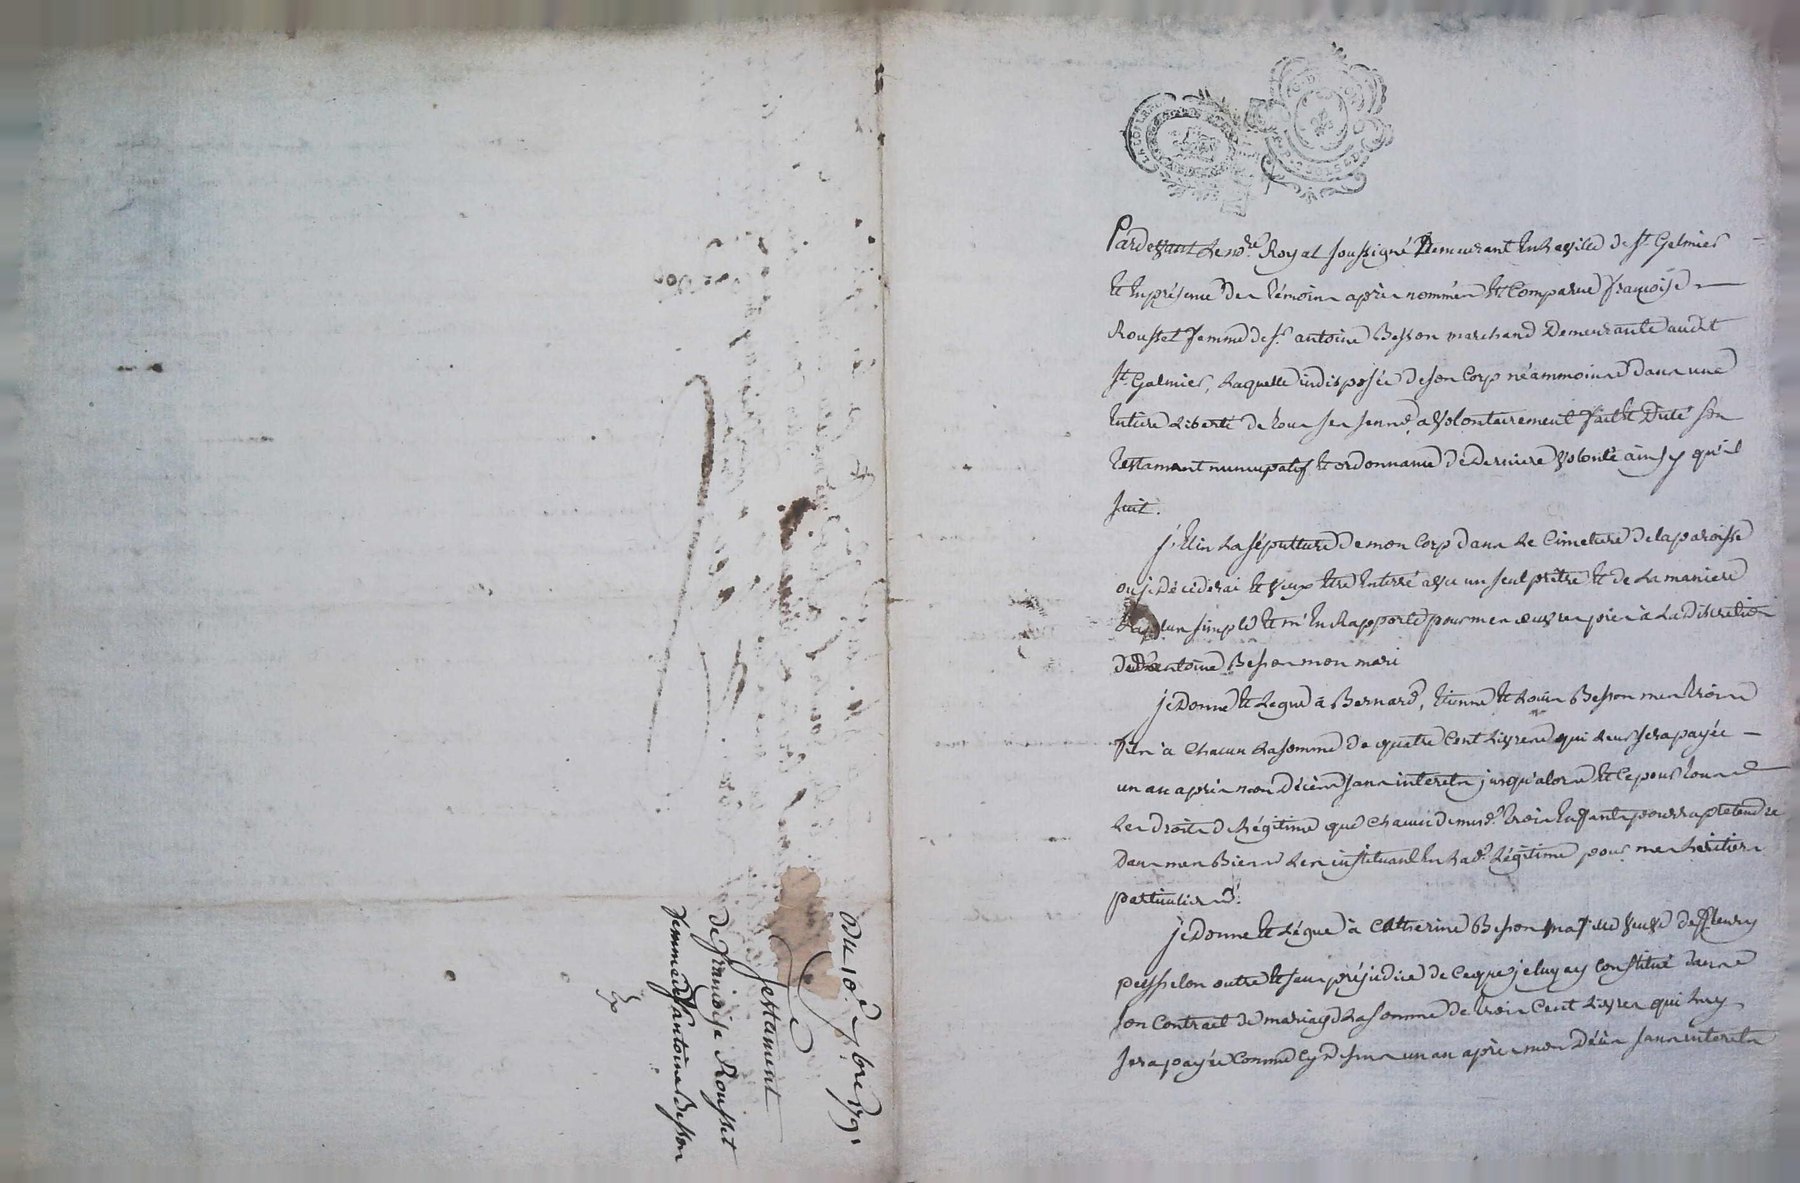 Pardevant le no.re Royal soussigné Demeurant en la ville de St Gelmier
et en présence des témoins après nommés est Comparue françoise
Rousset femme de Sr antoine Besson marchand Demeurante audit
St Galmier, laquelle indisposée de son Corp néammoins dans une
entiere liberté de tous ses sens, a volontairement fait et Dicté son
testament nuncupatif et ordonnance de Derniere volonté ainsy qu'il
suit.
J'élis la sépulture de mon Corp dans le Cimetiere de la paroisse
ou je décéderai et veux être enterré avec un seul prêtre et de la maniere
la plus simple et m'en Rapporte pour mes œuvres pies à la Discretion
dud. antoine Besson mon mari
je Donne et Legue à Bernard, Etienne et Louis Besson mes trois
fils à Chacun la somme de quatre Cent livres qui leur sera payée
un an après mon Décès sans interets jusqu'alors et Ce pour tous
les droits de Légitime que Chacun de mesd. trois enfants pourra pretendre
dans mes Biens les instituant en lad. Légitime pour mes héritiers
particuliers.
je Donne et Légue à Catherine Besson ma fille veuve de fleury
peysselon outre et sans préjudice de Ce que je luy ay Constitué dans
son Contrat de mariage la somme de trois Cent livres qui luy
sera payée Comme Cy dessus un an après mon Décès sans interets
Du 10e 7.bre 1791
Testament
de françoise Rousset
femme de Sr antoine Besson